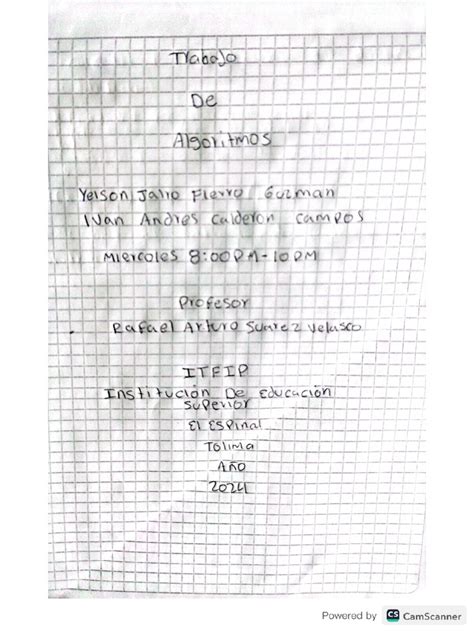 Trabajo
De
Algoritmos
Yeison Jairo Fierro Guzman
Ivan Andres Calderon Campos
Miercoles 8:00 PM-10 PM
Profesor
Rafael Arturo Suarez Velasco
ITFIP
Institución De Educación
Superior
El Espinal
Tolima
Año
2024
Powered by CS CamScanner